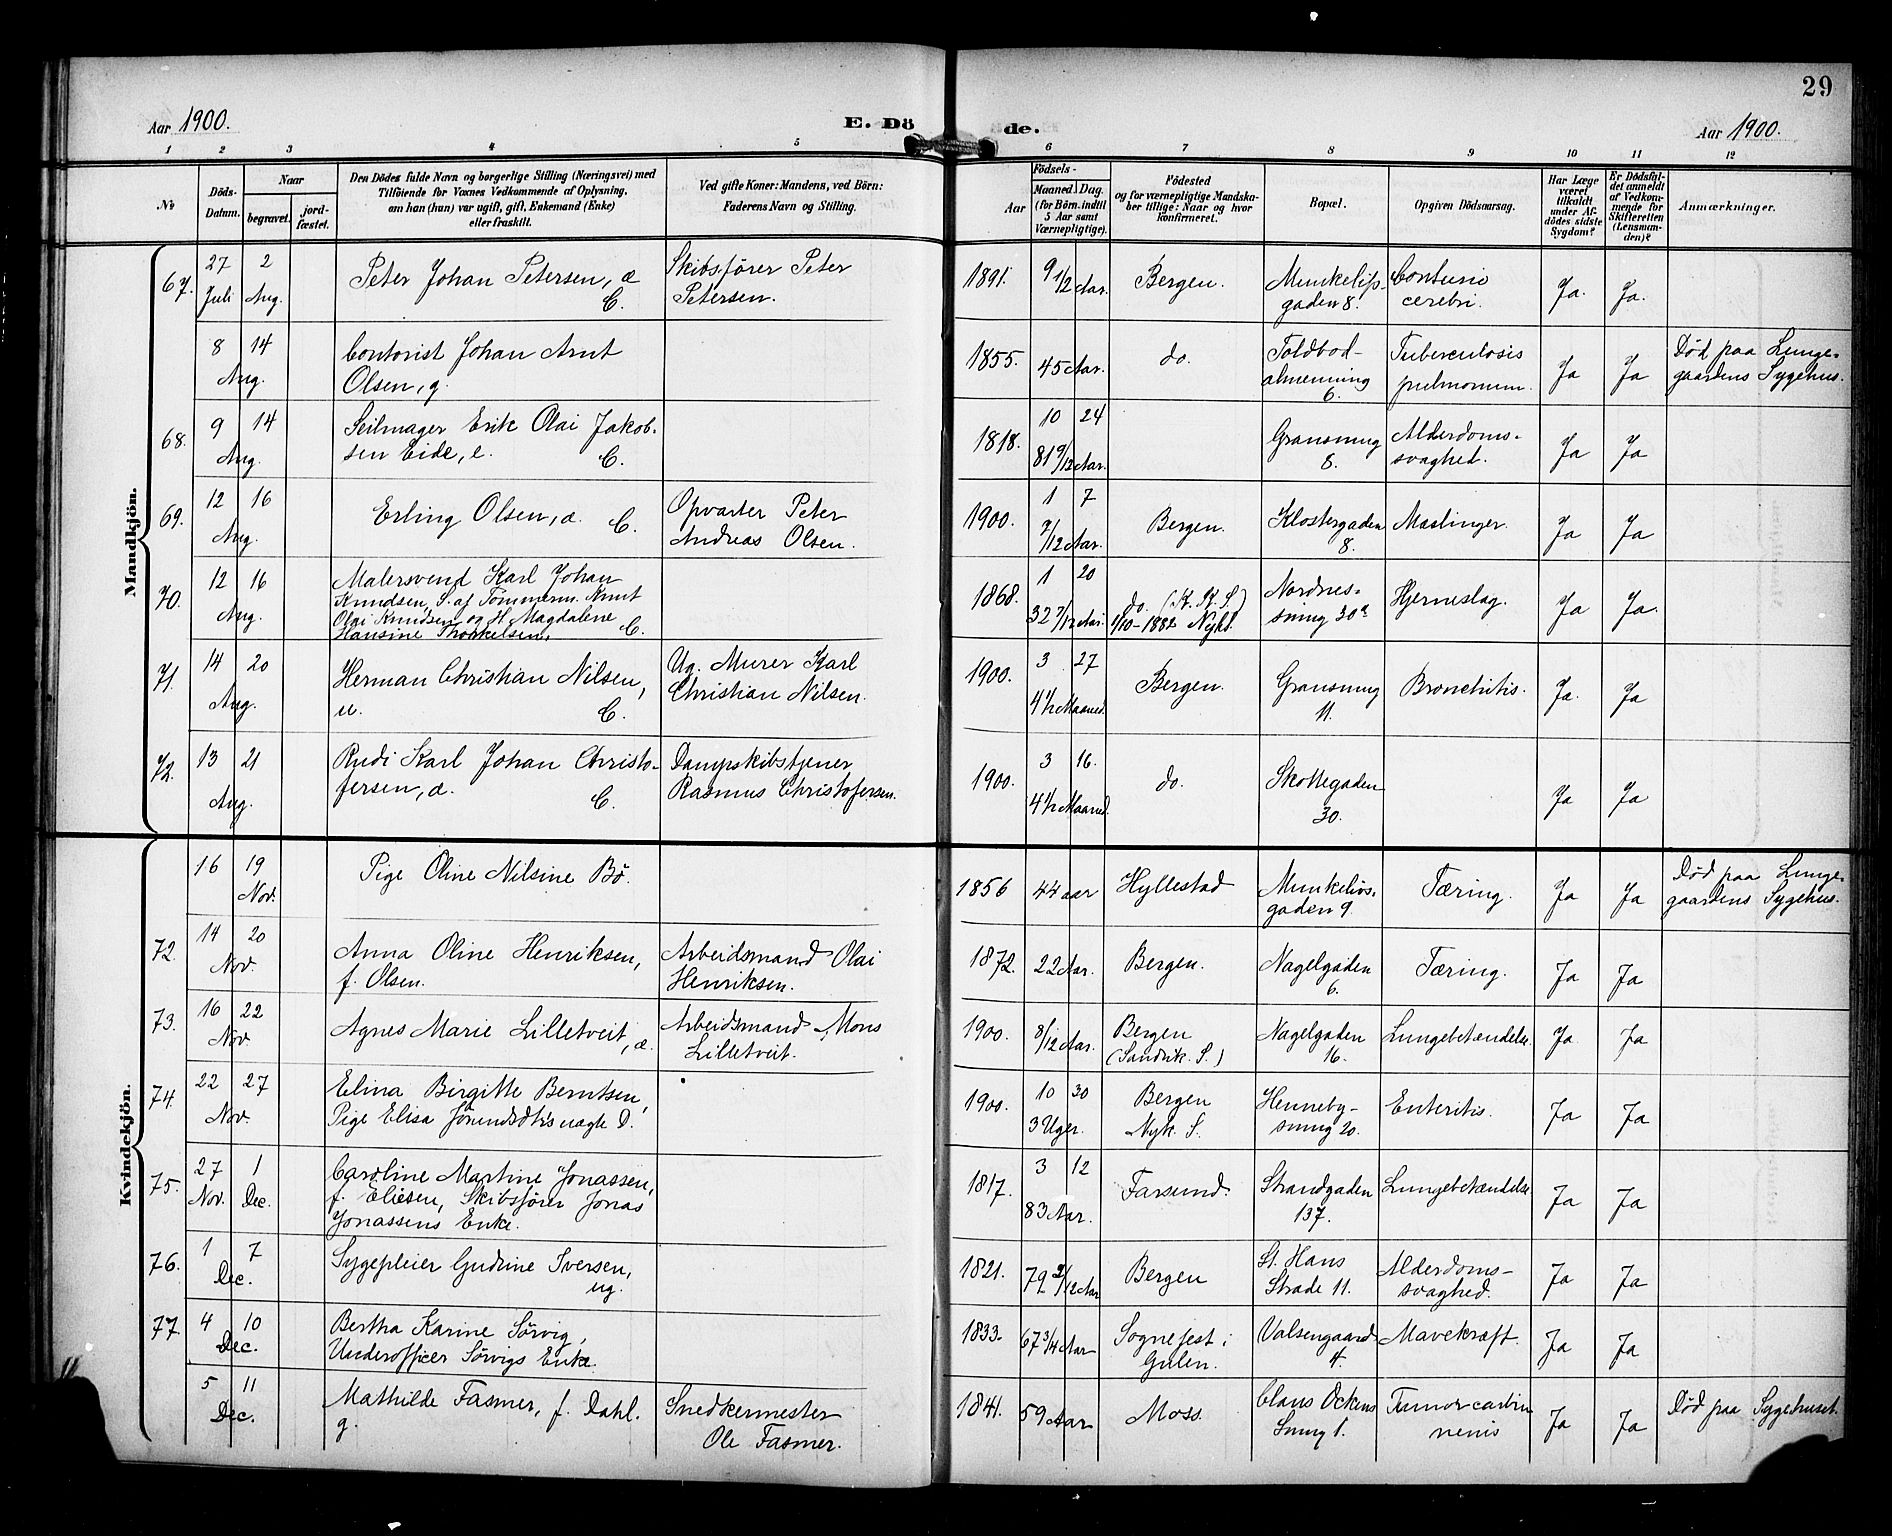 29
Aar 1900.
E. Döde.
Aar 1900.
1 2 3 4 5 6 7 8 9 10 11 12
No
Döds-Datum.
Naar
begravet.
jordfæstet.
Den Dödes fulde Navn og borgerlige Stilling (Næringsvei) med
Tilföiende for Voxnes Vedkommende af Oplysning,
om han (hun) var ugift, gift, Enkemand (Enke)
eller fraskilt.
Ved gifte Koner: Mandens, ved Börn:
Faderens Navn og Stilling.
Födsels-
Aar
Maaned. Dag.
(for Börn indtil
5 Aar samt
Værnepligtige).
Födested
og for værnepligtige Mandska-
ber tillige: Naar og hvor
konfirmeret.
Bopæl.
Opgiven Dödsaarsag.
Har Læge
været
tilkaldt
under Af-
dödes sidste
Sygdom?
Er Dödsfal-
det anmeldt
af Vedkom-
mende for
Skifteretten
(Lensman-
den)?
Anmærkninger.
Mandkjön.
67. 27 Juli 2 Aug.
Peter Johan Petersen, æ
C.
Skibsfører Peter
Petersen.
1891. 9 1/2 Aar. Bergen.
Munkeliv-
gaden 8.
Contusio
cerebri.
Ja. Ja.
8 14 Aug.
Contorist Johan Arnt
Olsen, g.
1855. 45 Aar. do.
Toldbod-
almenning
6.
Tuberculosis
pulmonum.
Ja Ja
Død paa Lunge-
gaardens Sygehus.
68. 9 14 Aug.
Seilmager Erik Olai Jakob-
sen Eide, e. C.
1818. 10 24
81 9/12 Aar.
Gransmug
8.
Alderdoms-
svaghed.
Ja Ja
69. 12 16 Aug.
Erling Olsen, æ. C.
Opvarter Peter
Andreas Olsen.
1900. 1 7
7/12 Aar.
Bergen.
Klostergaden
8.
Mæslinger.
Ja Ja
70. 12 16 Aug.
Malersvend Karl Johan
Knudsen, S. af Tømmerm. Knut
Olai Knudsen og H. Magdalene
Hansine Thorkelsen, C.
1868. 1 20
32 7/12 Aar.
do. (K. K. S.)
1/10-1882 Nykl.
Nordnes-
smug 30a
Hjerneslag.
Ja Ja.
71. 14 20 Aug.
Herman Christian Nilsen,
u. C.
Ug. Murer Karl
Christian Nilsen.
1900. 3 27
4 1/2 Maaned.
Bergen.
Gransmug
11.
Bronchitis.
Ja. Ja
72. 13 21 Aug.
Rudi Karl Johan Christo-
fersen, æ. C.
Dampskibstjener
Rasmus Christofersen.
1900. 3 16.
4 1/2 Maaned.
do.
Skottegaden
30.
Ja Ja
Kvindekjön.
16 19 Nov.
Pige Oline Nilsine Bø.
1856 44 aar Hyllestad
Munkelivs-
gaden 9.
Tæring.
Ja Ja
Død paa Lunge-
gaardens Sygehus.
72. 14 20 Nov.
Anna Oline Henriksen,
f. Olsen.
Arbeidsmand Olai
Henriksen.
1872. 22 Aar. Bergen.
Nagelgaden
6.
Tæring.
Ja Ja
73. 16 22 Nov.
Agnes Marie Lilletveit, æ.
Arbeidsmand Mons
Lilletveit.
1900. 8/12 Aar.
Bergen
(Sandvik. S.)
Nagelgaden
16.
Lungebetændelse.
Ja Ja
74. 22 27 Nov.
Elina Birgitte Berntsen,
Pige Elisa uægte D.
1900. 10 30
3 Uger.
Bergen
Nyk. S.
Henneby-
smug 20.
Enteritis.
Ja Ja
75. 27 Nov. 1 Dec.
Caroline Martine Jonassen,
f. Eliesen, Skibsfører Jonas
Jonassens Enke.
1817. 3 12
83 Aar.
Farsund.
Strandgaden
137.
Lungebetændelse
Ja Ja
76. 1 7 Dec.
Sygepleier Gudrine Iversen,
ug.
1821. 79 2/12 Aar Bergen
St. Hans
Strade 11.
Alderdoms-
svaghed.
Ja Ja
77. 4 10 Dec.
Bertha Karine Sørvig,
Underofficer Sørvigs Enke.
1833. 67 3/4 Aar
Sognefest i
Gulen.
Valsengaard
4.
Mavekræft.
Ja Ja
5 11 Dec.
Mathilde Fasmer, f. Dahl.
g.
Snedkermester
Ole Fasmer.
1841. 59 Aar Moss.
Claus Ockens
Smug 1.
Tumor
Ja Ja
Død paa Sygehuset.